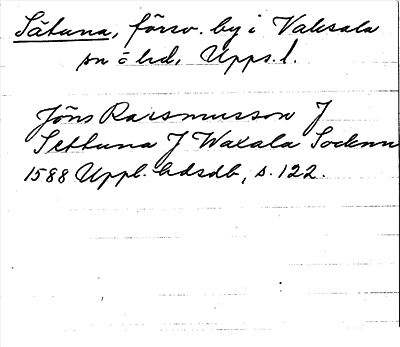 Sätuna, försv. by i Vaksala
sn o hd, Upps. l.
Jöns Rassmusson J
Settuna J Waxala Socknn
1588 Uppl. hdsdb, s. 122.